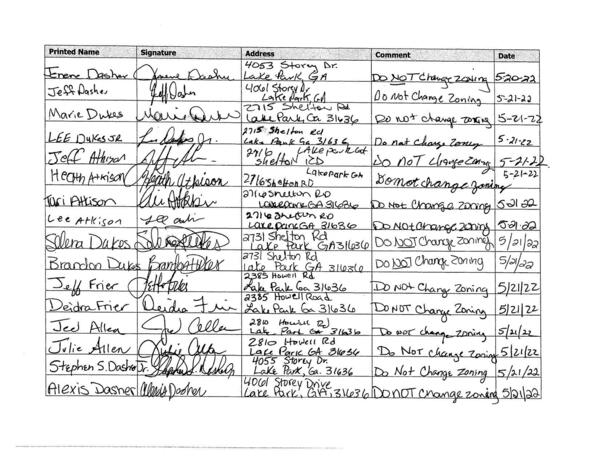 Printed Name Signature Address Comment Date
4053 Storey Dr.
Irene Dasher Irene Dasher Lake Park, GA Do NOT Change Zoning 5-20-22
4061 Storey Dr
Jeff Dasher Jeff Dasher Lake Park, GA Do Not Change Zoning 5-21-22
2715 Shelton Rd
Marie Dukes Marie Dukes Lake Park, Ga. 31636 Do not change zoning 5-21-22
2715 Shelton Rd
LEE DUKES JR Lee Dukes Jr. Lake Park Ga 31636 Do not change Zoning 5-21-22
2716 LAKE park Ga
Jeff Atkison Shelton RD DO NOT Change Zoning 5-21-22
Lake park Ga 5-21-22
Heath Atkison Heath Atkison 2716 Shelton RD Do not change zoning
2716 Shelton RD
Tari Atkison Lake park GA 31636 Do Not Change Zoning 5-21-22
2716 Shelton RD
Lee Atkison Lake park GA 31636 Do Not Change Zoning 5-21-22
2731 Shelton Rd
Selena Dukes Selena Dukes Lake Park GA 31636 Do NOT Change Zoning 5/21/22
2731 Shelton Rd
Brandon Dukes Brandon Dukes Lake Park GA 31636 Do NOT Change Zoning 5/21/22
2385 Howell Rd
Jeff Frier Jeff Frier Lake Park Ga 31636 DO NOT Change Zoning 5/21/22
2385 Howell Road
Deidra Frier Deidra Frier Lake Park GA 31636 DO NOT Change Zoning 5/21/22
2810 Howell Rd
Joel Allen Joel Allen Lake Park GA 31636 Do not change zoning 5/21/22
2810 Howell Rd
Julie Allen Julie Allen Lake Park GA 31636 Do Not Change Zoning 5/21/22
4055 Storey Dr
Stephen S. Dasher Jr. Stephen S. Dasher Jr. Lake Park, Ga. 31636 Do Not Change Zoning 5/21/22
4061 Storey Drive
Alexis Dasher Alexis Dasher Lake Park, GA, 31636 DO NOT Change zoning 5/21/22